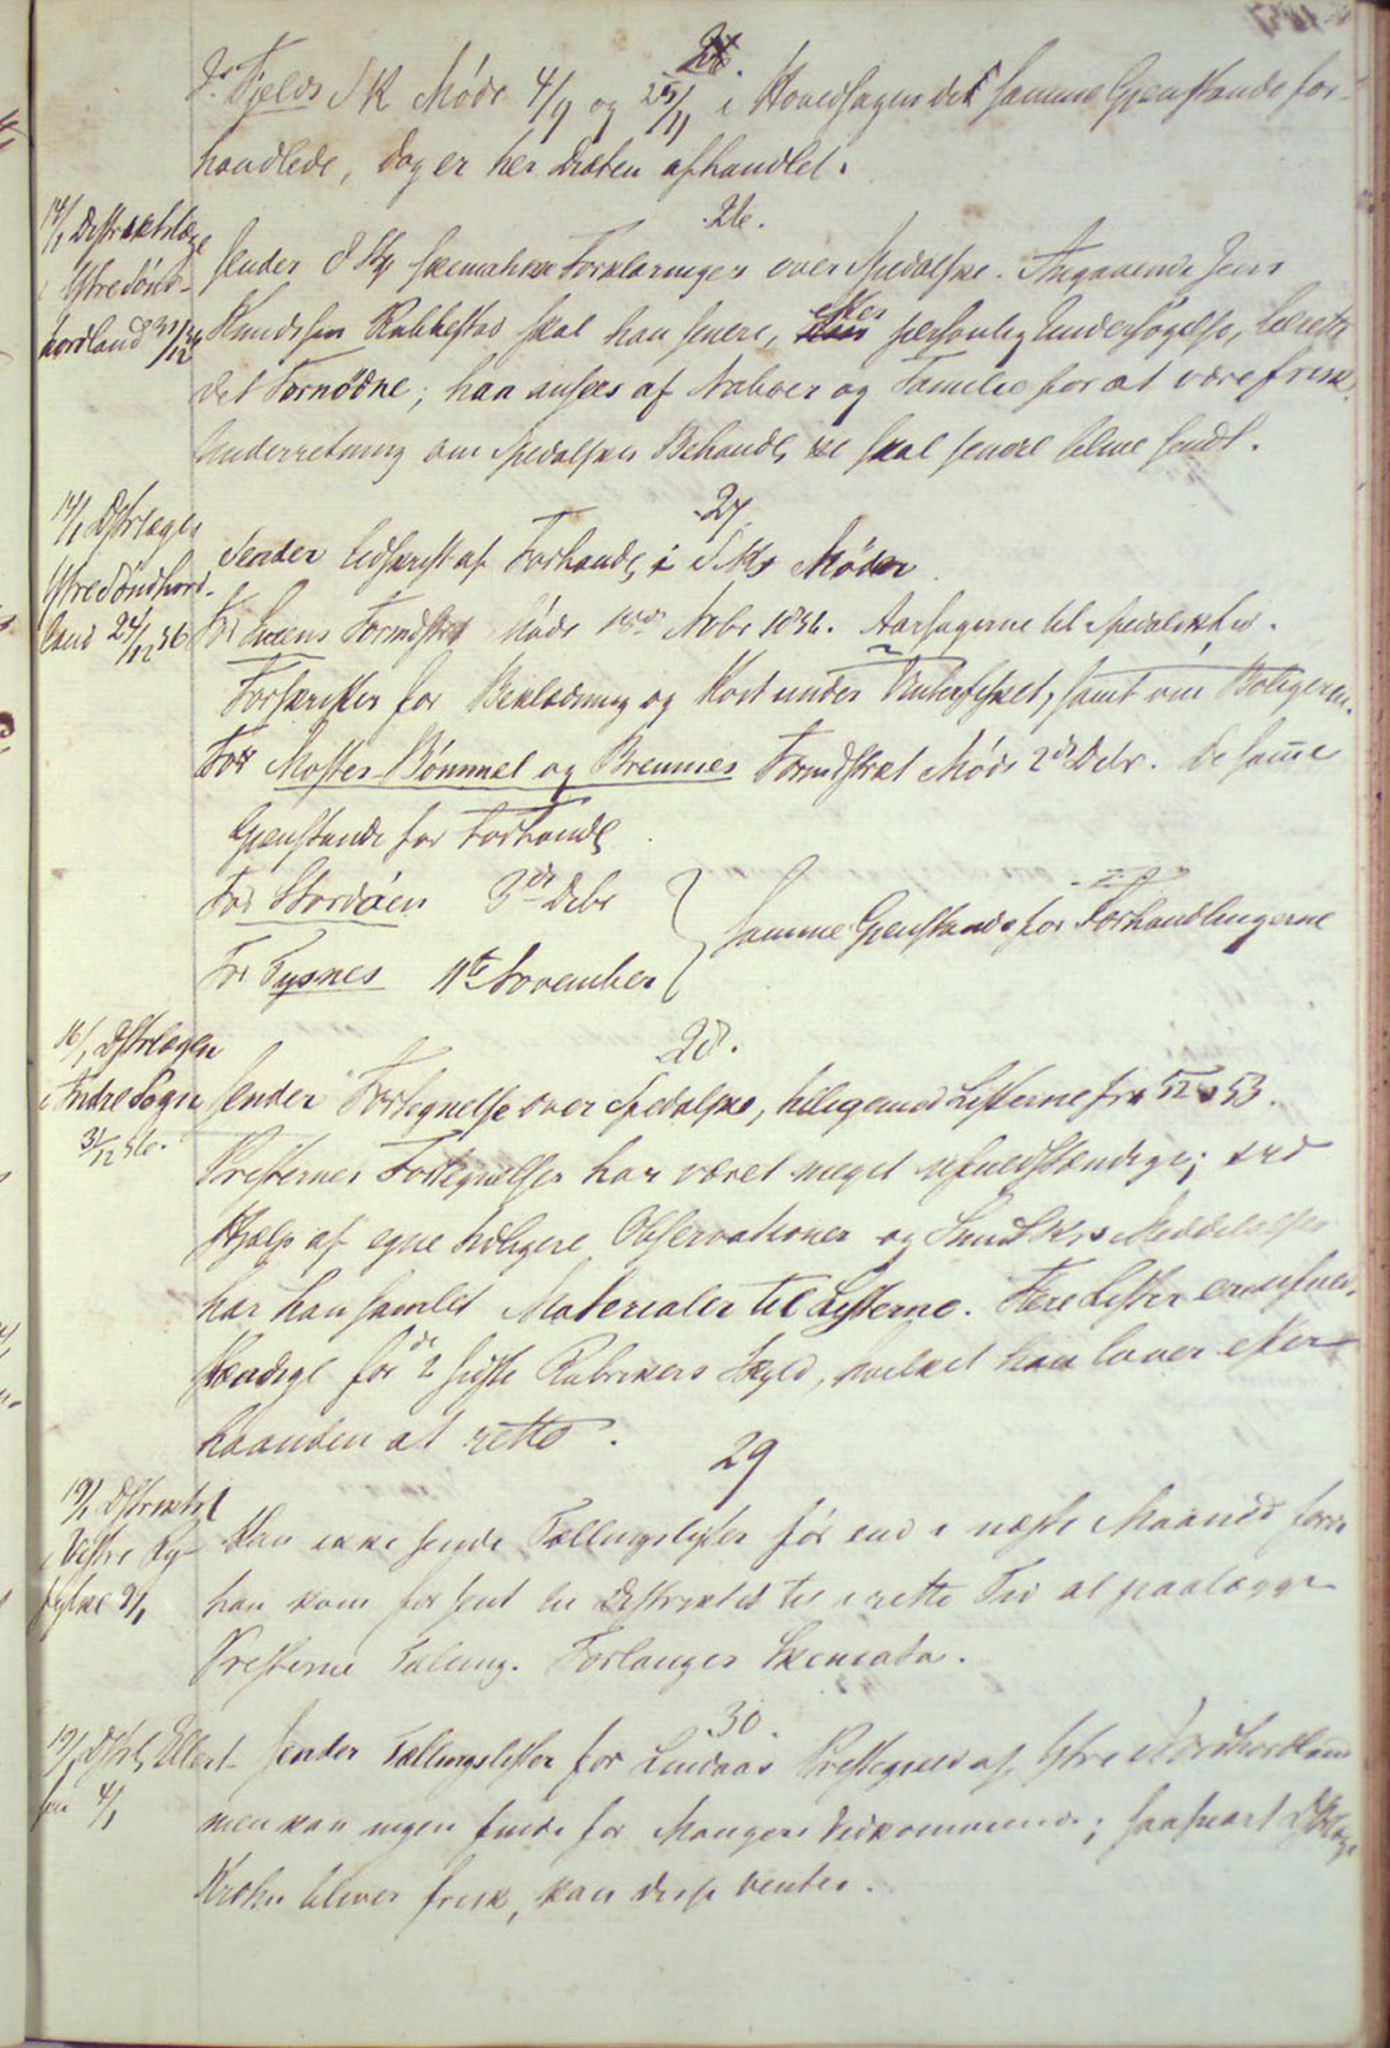 I Fjelds SK Møde 4/9 og 25/11 i Hovedsagen de samme Gjenstande for-
handlede, dog er her Diæten afhandlet.
26.
14/1 Distriktslæge
i Ytre Sønd-
hordland 31/12 56
Sender 8 Stk skematiske Forklaringer over Spedalske. Angaaende Jens
Knudssen Rabbestad skal han senere, efter personlig Undersøgelse, berette
det Fornødne; han ansees af Naboer og Familie for at være frisk.
Underretning om Spedalskes Behandl, skal senere blive sendt.
27.
14/1 Dstrlægen
Ytre Søndhord-
land 24/12 56
Sender Udskrift af Forhandl, i SKs Møder.
For Fineens Formdskb Møde Novbr 1856. Aarsagerne til Spedalskhed.
Forskrifter for Beklædning og Kost under Vinterfisket, samt om Boligerne.
For Moster Bømmel og Bremnes Formdskab Møde 2de Debr. De samme
Gjenstande for Forhandl.
For Stordøen 3die Debr
For Tysnes 11te November
Samme Gjenstande for Forhandlingerne
28.
16/1 Dstrlægen
i Indre Sogn
31/12 56.
Sender Fortegnelse over Spedalske, tilligemed Listerne fra 52 & 53.
Presternes Fortegnelser har været meget ufuldstændige; ved
Hjælp af egne tidligere Observationer og SundhKs Meddelelser
har han samlet Materialer til Listerne. Flere Lister er ufuld-
stændige for de 2 sidste Rubrikers Skyld, hvilket han lover efter-
haanden at rette.
29
19/1 Distriktsl
i Vestre Ry-
fylke 9/1
Kan ikke sende Tællingslister før end i næste Maaned fordi
han kom for sent til Distriktet til i rette Tid at paalægge
Presterne Tælling. Forlanger Skemata.
30.
19/1 Dstrl, Ellert-
sen 4/1
Sender Tællingslister for Lindaas Prestegjeld af Ytre Nordhordland
men kan ingen finde for Mangers Vedkommende; saasnart Dstrlæge
Krohn bliver frisk, kan disse ventes.